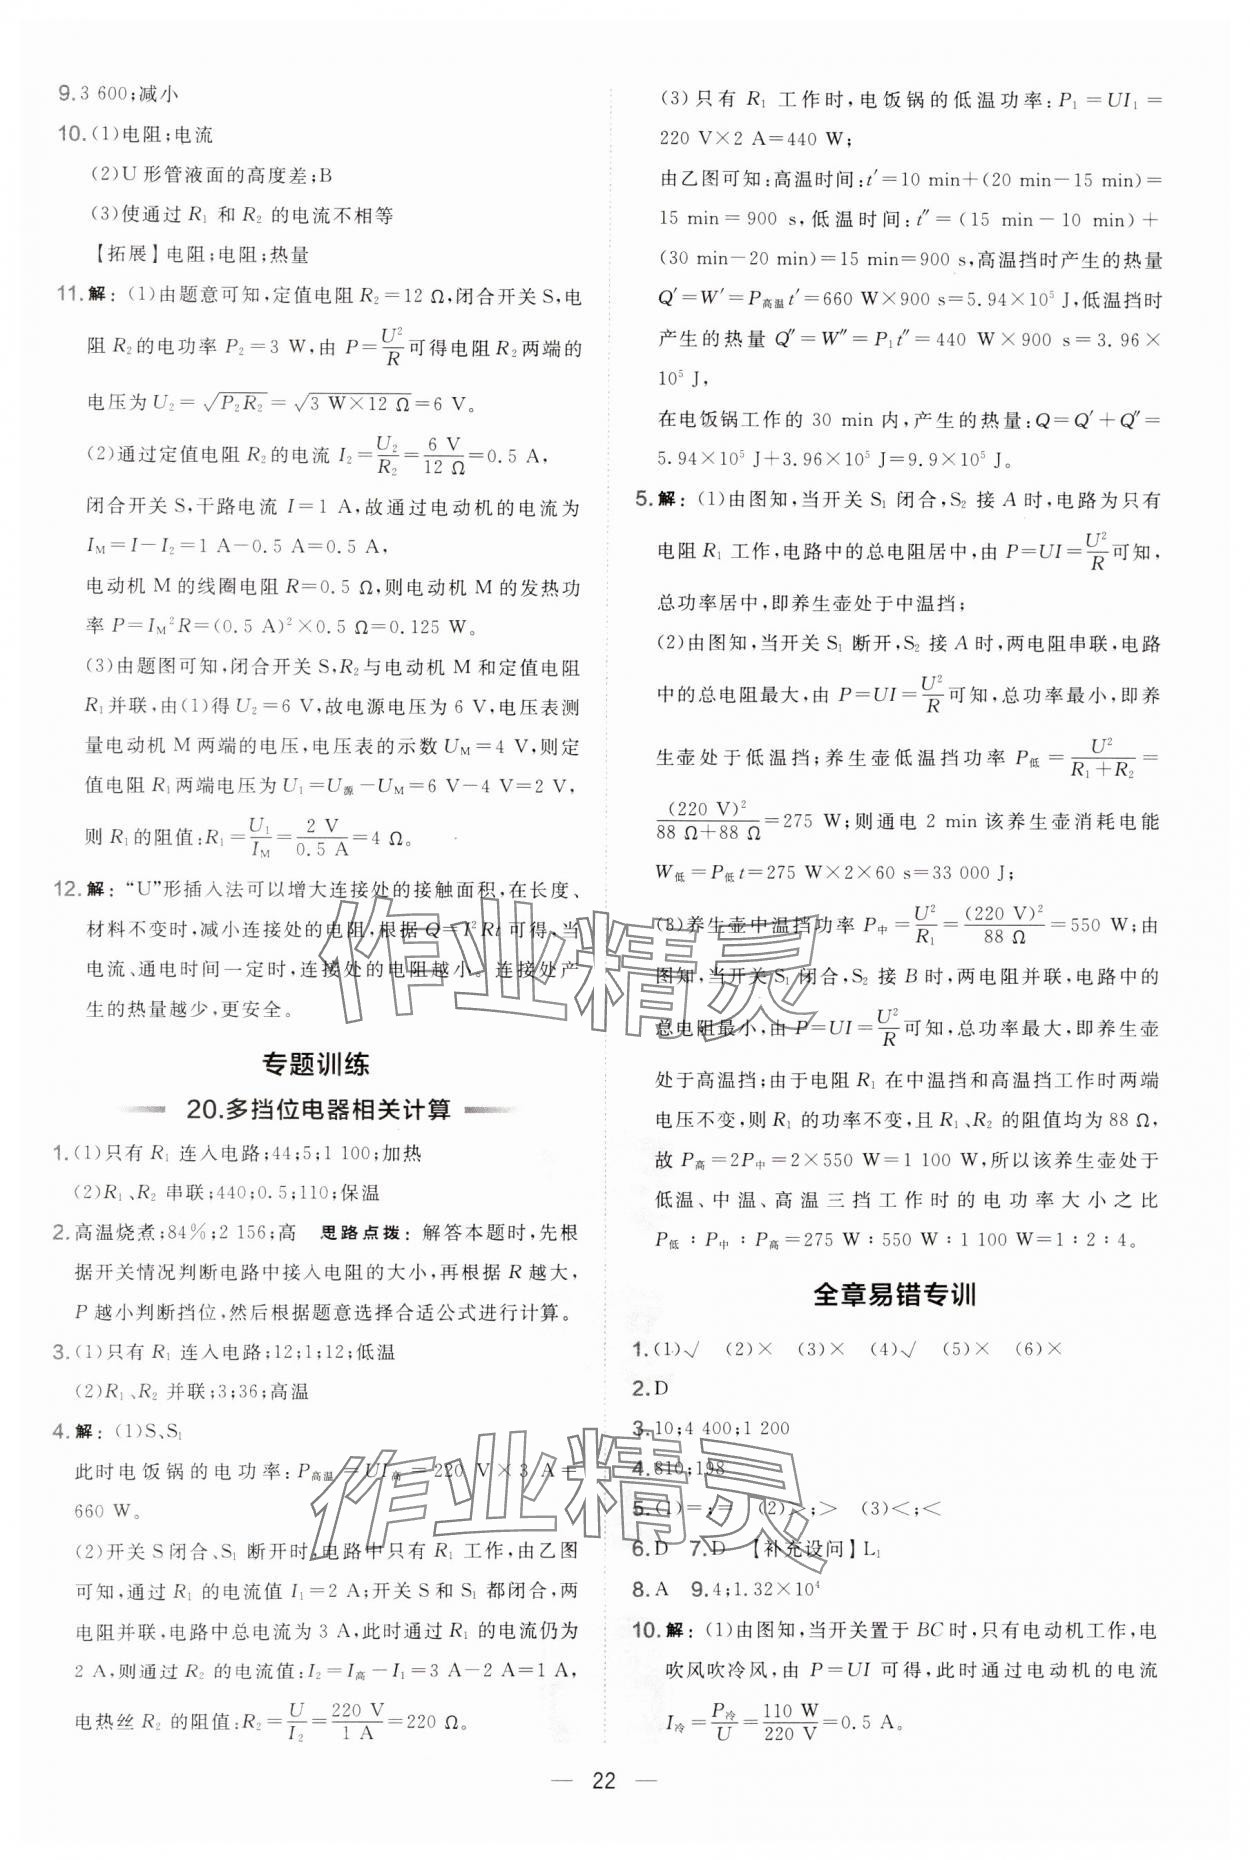 9. 3 600;减小
10. (1)电阻;电流
(2)U 形管液面的高度差;B
(3)使通过 R₁ 和 R₂ 的电流不相等
【拓展】电阻;电阻;热量
11. 解:(1)由题意可知,定值电阻 R₂=12 Ω,闭合开关 S,电
阻 R₂的电功率 P₂=3 W,由 P=U²/R 可得电阻 R₂两端的
电压为 U₂=√(P₂R₂)=√(3 W×12 Ω)=6 V。
(2)通过定值电阻 R₂的电流 I₂=U₂/R₂=6 V/12 Ω=0.5 A,
闭合开关 S,干路电流 I=1 A,故通过电动机的电流为
I_M=I-I₂=1 A-0.5 A=0.5 A,
电动机 M 的线圈电阻 R=0.5 Ω,则电动机 M 的发热功
率 P=I_M²R=(0.5 A)²×0.5 Ω=0.125 W。
(3)由题图可知,闭合开关 S,R₂与电动机 M 和定值电阻
R₁并联,由(1)得 U₂=6 V,故电源电压为 6 V,电压表测
量电动机 M 两端的电压,电压表的示数 U_M=4 V,则定
值电阻 R₁两端电压为 U₁=U源-U_M=6 V-4 V=2 V,
则 R₁的阻值:R₁=U₁/I_M=2 V/0.5 A=4 Ω。
12. 解:“U”形插入法可以增大连接处的接触面积,在长度、
材料不变时,减小连接处的电阻,根据 Q=I²Rt 可得,当
电流、通电时间一定时,连接处的电阻越小。连接处产
生的热量越少,更安全。
专题训练
20.多挡位电器相关计算
1. (1)只有 R₁ 连入电路;44;5;1 100;加热
(2)R₁、R₂ 串联;440;0.5;110;保温
2. 高温烧煮;84%;2 156;高 思路点拨:解答本题时,先根
据开关情况判断电路中接入电阻的大小,再根据 R 越大,
P 越小判断挡位,然后根据题意选择合适公式进行计算。
3. (1)只有 R₁ 连入电路;12;1;12;低温
(2)R₁、R₂ 并联;3;36;高温
4. 解:(1)S、S₁
此时电饭锅的电功率:P高温=UI高=220 V×3 A=
660 W。
(2)开关 S闭合、S₁ 断开时,电路中只有 R₁ 工作,由乙图
可知,通过 R₁ 的电流值 I₁=2 A;开关 S 和 S₁ 都闭合,两
电阻并联,电路中总电流为 3 A,此时通过 R₁ 的电流仍为
2 A,则通过 R₂ 的电流值:I₂=I高-I₁=3 A-2 A=1 A,
电热丝 R₂ 的阻值:R₂=U/I₂=220 V/1 A=220 Ω。
(3)只有 R₁ 工作时,电饭锅的低温功率:P₁=UI₁=
220 V×2 A=440 W;
由乙图可知:高温时间:t′=10 min+(20 min-15 min)=
15 min=900 s,低温时间:t″=(15 min-10 min)+
(30 min-20 min)=15 min=900 s,高温挡时产生的热量
Q′=W′=P高温t′=660 W×900 s=5.94×10⁵ J,低温挡时
产生的热量 Q″=W″=P₁t″=440 W×900 s=3.96×
10⁵ J,
在电饭锅工作的 30 min 内,产生的热量:Q=Q′+Q″=
5.94×10⁵ J+3.96×10⁵ J=9.9×10⁵ J。
5. 解:(1)由图知,当开关 S₁ 闭合,S₂ 接 A 时,电路为只有
电阻 R₁ 工作,电路中的总电阻居中,由 P=UI=U²/R可知,
总功率居中,即养生壶处于中温挡;
(2)由图知,当开关 S₁ 断开,S₂ 接 A 时,两电阻串联,电路
中的总电阻最大,由 P=UI=U²/R可知,总功率最小,即养
生壶处于低温挡;养生壶低温挡功率 P低=U²/(R₁+R₂)=
(220 V)²/(88 Ω+88 Ω)=275 W;则通电 2 min 该养生壶消耗电能
W低=P低t=275 W×2×60 s=33 000 J;
(3)养生壶中温挡功率 P中=U²/R₁=(220 V)²/88 Ω=550 W;由
图知,当开关 S₁ 闭合,S₂ 接 B 时,两电阻并联,电路中的
总电阻最小,由 P=UI=U²/R可知,总功率最大,即养生壶
处于高温挡;由于电阻 R₁ 在中温挡和高温挡工作时两端
电压不变,则 R₁ 的功率不变,且 R₁、R₂ 的阻值均为 88 Ω,
故 P高=2P中=2×550 W=1 100 W,所以该养生壶处于
低温、中温、高温三挡工作时的电功率大小之比
P低∶P中∶P高=275 W∶550 W∶1 100 W=1∶2∶4。
全章易错专训
1. (1)√ (2)× (3)× (4)√ (5)× (6)×
2. D
3. 10;4 400;1 200
4. 810;198
5. (1)=;= (2)>;> (3)<;<
6. D 7. D 【补充设问】L₁
8. A 9. 4;1.32×10⁴
10. 解:(1)由图知,当开关置于 BC 时,只有电动机工作,电
吹风吹冷风,由 P=UI 可得,此时通过电动机的电流
I冷=P冷/U=110 W/220 V=0.5 A。
— 22 —
作业精灵
作业精灵